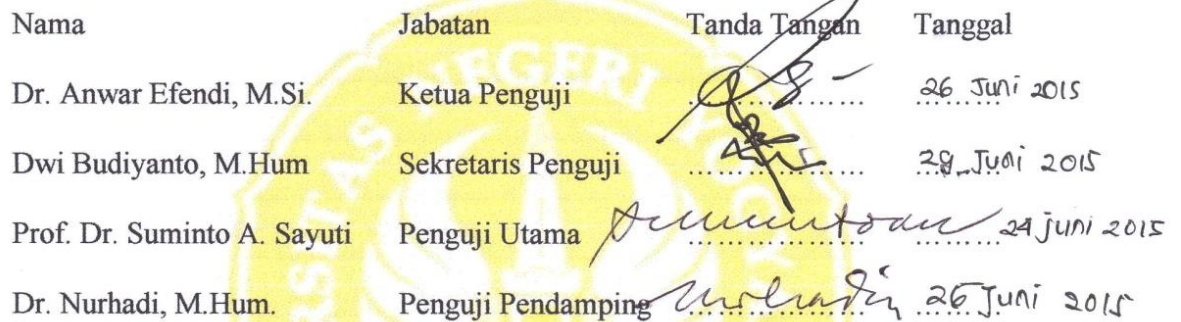 Nama Jabatan Tanda Tangan Tanggal
Dr. Anwar Efendi, M.Si. Ketua Penguji 26 Juni 2015
Dwi Budiyanto, M.Hum Sekretaris Penguji 29 Juni 2015
Prof. Dr. Suminto A. Sayuti Penguji Utama 24 juni 2015
Dr. Nurhadi, M.Hum. Penguji Pendamping 26 Juni 2015